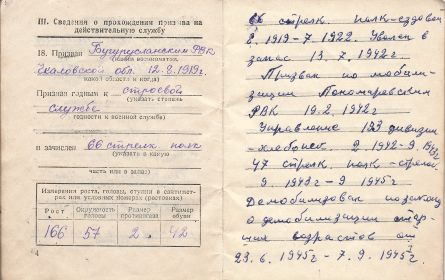 III. Сведения о прохождении призыва на
действительную службу
18. Призван Бугурусланским РВК
(каким военкоматом,
Чкаловской обл. 12.8.1919г.
какой области и когда)
Признан годным к строевой
(указать степень
службе
годности к военной службе)
и зачислен 66 стрелк. полк
(указать в какую
часть или в запас)
Измерения роста, головы, ступни в сантимет-
рах или условных номерах (ростовках)
Рост Окружность головы Размер противогаза Размер обуви
166 57 2. 42
4
66 стрелк. полк-ездовой
8.1919-7.1922. Уволен в
запас 13.7.1942г.
Призван по мобили-
зации Пономаревским
РВК 19.2.1942г
Управление 123 дивизии
-хлебопек 2.1942-9.
47 стрелк. полк-стрелок
9.1943г-9.1945г
Демобилизован по закону
о демобилизации стар-
ших возрастов от
23.6.1945г-7.9.1945г.